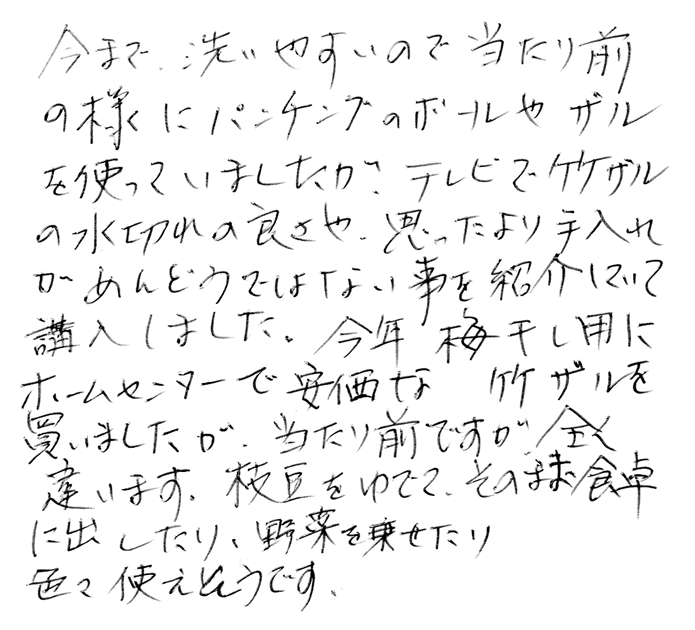 今まで、洗いやすいので当たり前
の様にパンチングのボールやザル
を使っていましたが、テレビで竹ザル
の水切れの良さや、思ったより手入れ
がめんどうではない事を紹介していて
講入しました。今年 梅干し用に
ホームセンターで安価な 竹ザルを
買いましたが、当たり前ですが、全く
違います。枝豆をゆでて、そのまま食卓
に出したり、野菜を乗せたり
色々使えそうです。